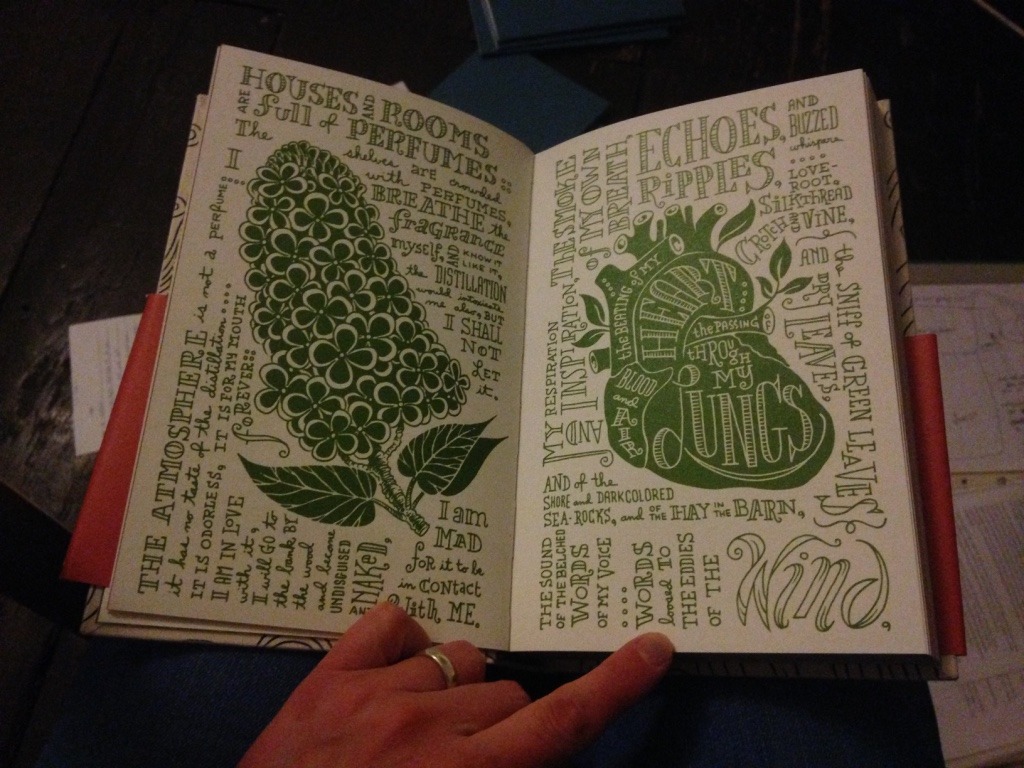 HOUSES AND ROOMS
ARE full of PERFUMES::
The shelves are crowded
with PERFUMES,
I BREATHE the
fragrance
myself, AND KNOW IT
and LIKE IT,
the DISTILLATION
would intoxicate
me also, BUT
I SHALL
NOT
LET
it.
THE ATMOSPHERE is not a PERFUME....
it has no taste of the distillation....
IT IS ODORLESS, IT IS FOR MY MOUTH
forever::
I AM IN LOVE
with it,
I will GO to
the bank BY
the wood
and become
UNDISGUISED
AND NAKED,
I am
MAD
for it to be
in CONTACT
With ME.
MY RESPIRATION
AND INSPIRATION,
THE SMOKE
of MY OWN
BREATH
ECHOES,
RIPPLES,
AND
BUZZED
whispers
....
LOVE-
ROOT,
SILKTHREAD
CROTCH and VINE,
the BEATING of MY
HEART
the PASSING
of
BLOOD
and
AIR
THROUGH
MY
LUNGS
the SNIFF of GREEN LEAVES
AND DRY LEAVES,
AND of the
SHORE and DARKCOLORED
SEA-ROCKS, and OF THE HAY IN THE BARN,
THE SOUND
OF THE BELCHED
WORDS
OF MY VOICE
....
WORDS
loosed TO
THE EDDIES
OF THE
Wind,